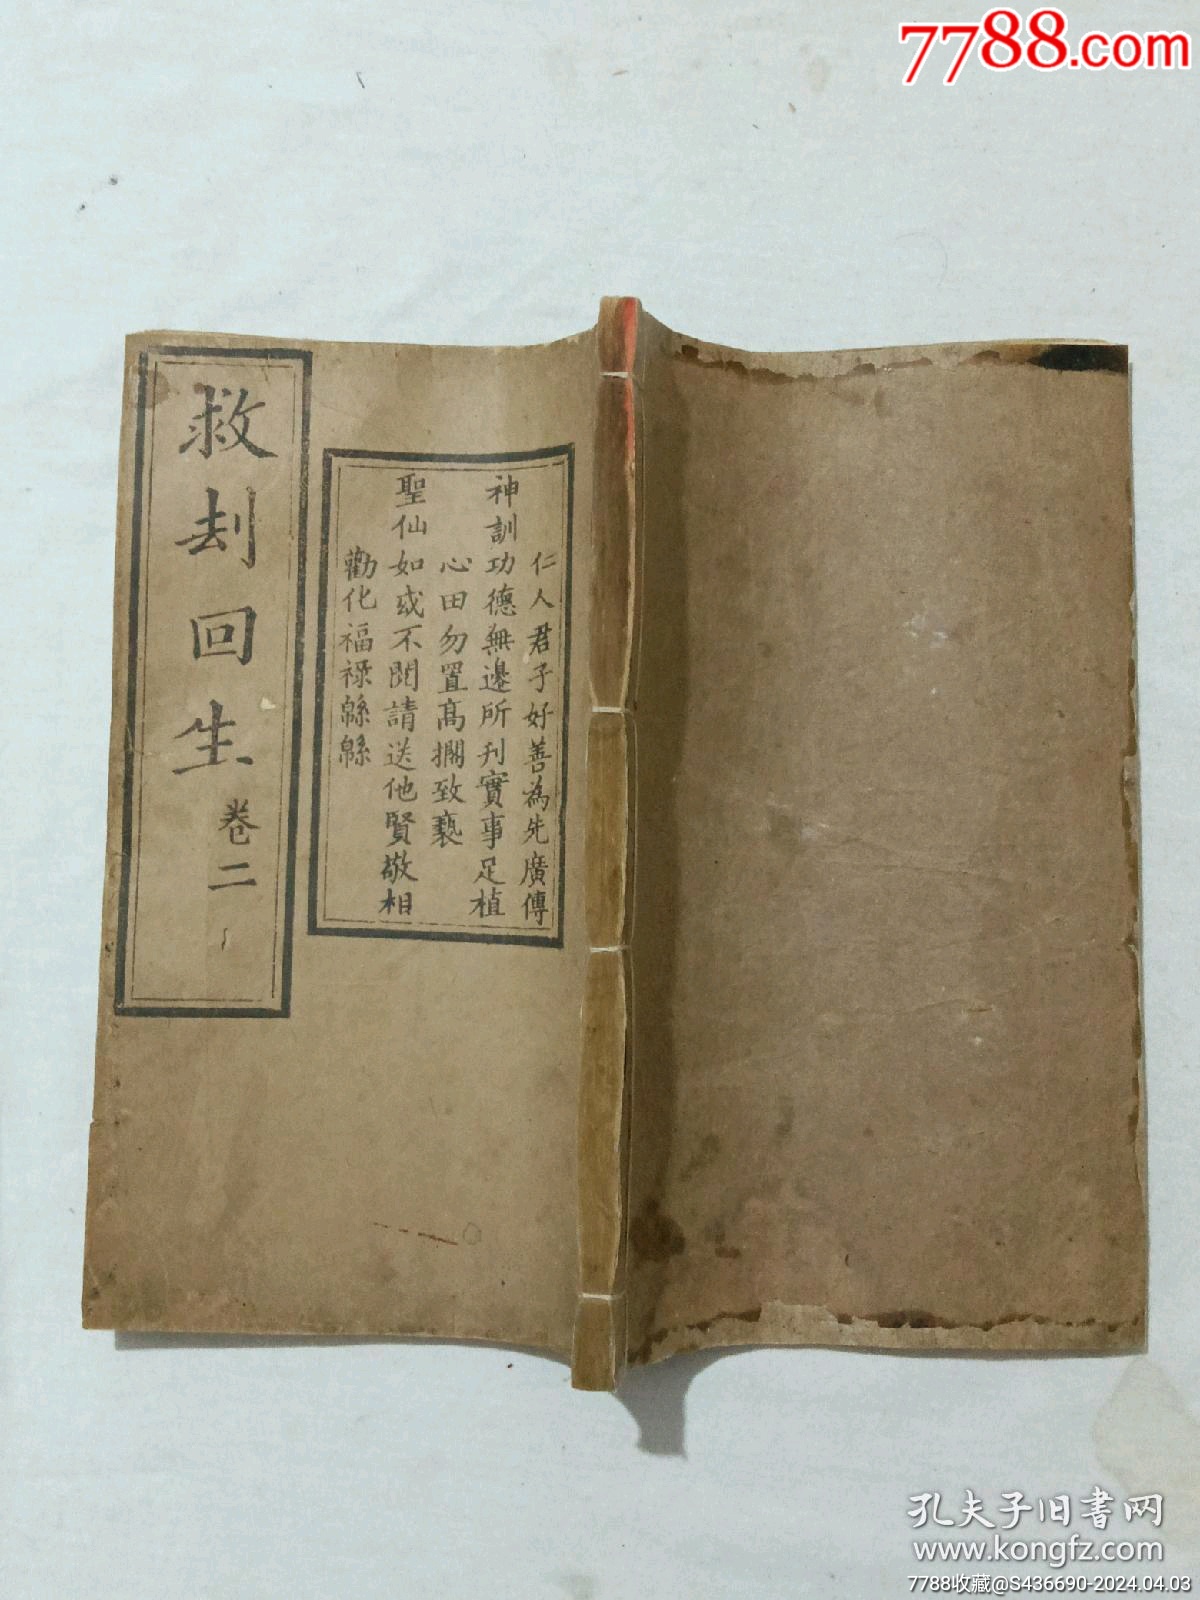 7788.com
救刦回生 卷二
仁人君子好善為先廣傳
神訓功德無邊所刋實事足植
心田勿置高擱致褻
聖仙如或不閱請送他賢敬相
勸化福祿緜緜
孔夫子旧書网
www.kongfz.com
7788收藏@S436690-2024.04.03